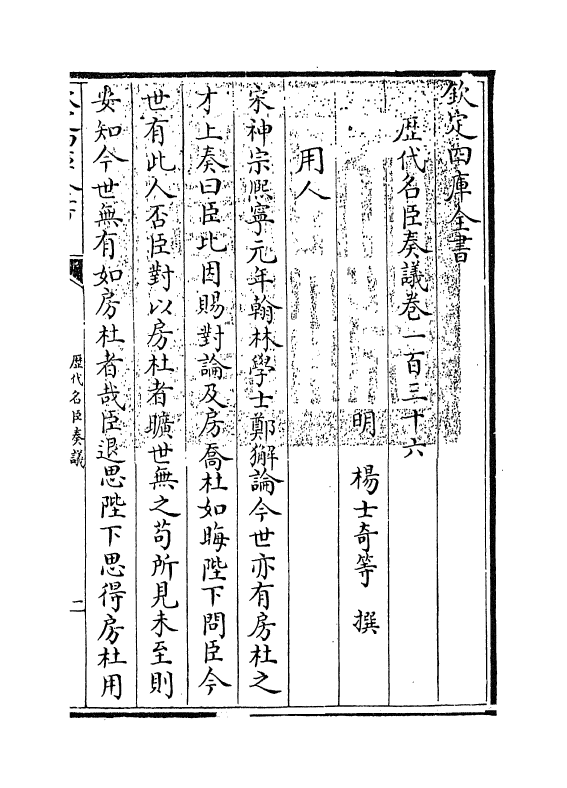 欽定四庫全書
歴代名臣奏議卷一百三十六
明 楊士奇等 撰
用人
宋神宗熈寧元年翰林學士鄭獬論今世亦有房杜之
才上奏曰臣比因賜對論及房喬杜如晦陛下問臣今
世有此人否臣對以房杜者曠世無之苟所見未至則
安知今世無有如房杜者哉臣退思陛下思得房杜用
歴代名臣奏議